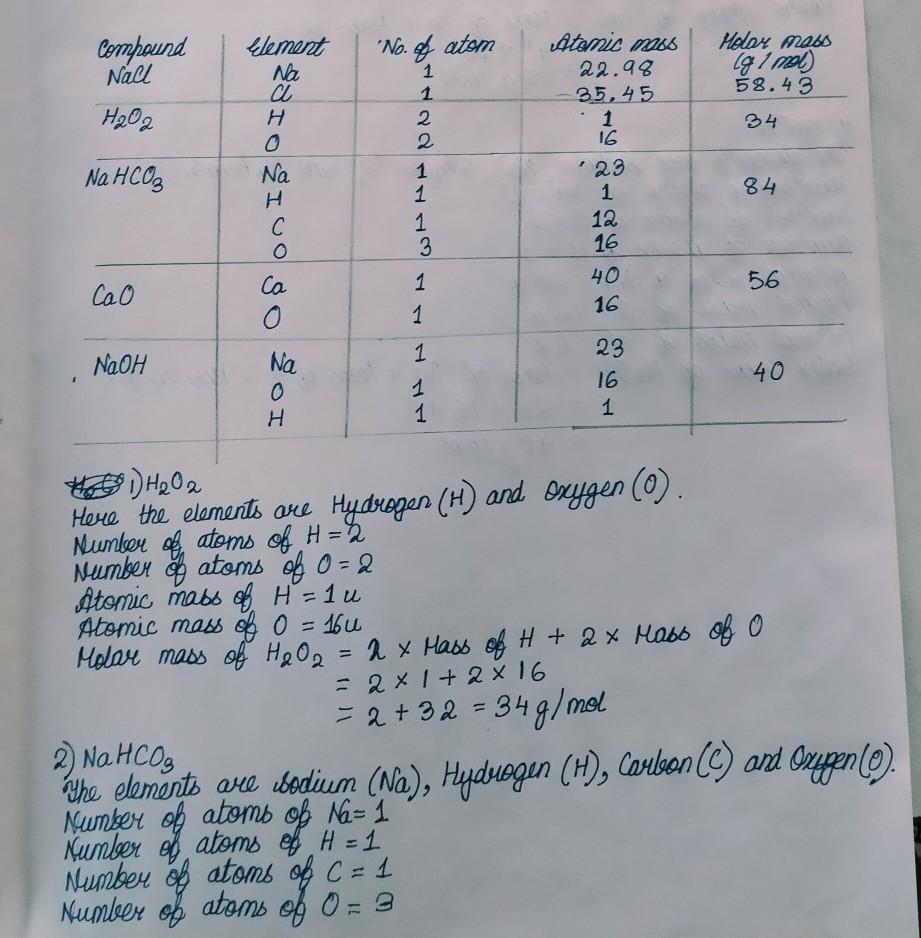 Compound Element No. of atom Atomic mass Molar mass (g/mol)
NaCl Na 1 22.98 58.43
Cl 1 35.45
H₂O₂ H 2 1 34
O 2 16
NaHCO₃ Na 1 23 84
H 1 1
C 1 12
O 3 16
CaO Ca 1 40 56
O 1 16
NaOH Na 1 23 40
O 1 16
H 1 1
1) H₂O₂
Here the elements are Hydrogen (H) and Oxygen (O).
Number of atoms of H = 2
Number of atoms of O = 2
Atomic mass of H = 1u
Atomic mass of O = 16u
Molar mass of H₂O₂ = 2 × Mass of H + 2 × Mass of O
= 2 × 1 + 2 × 16
= 2 + 32 = 34g/mol
2) NaHCO₃
The elements are sodium (Na), Hydrogen (H), Carbon (C) and Oxygen (O).
Number of atoms of Na = 1
Number of atoms of H = 1
Number of atoms of C = 1
Number of atoms of O = 3